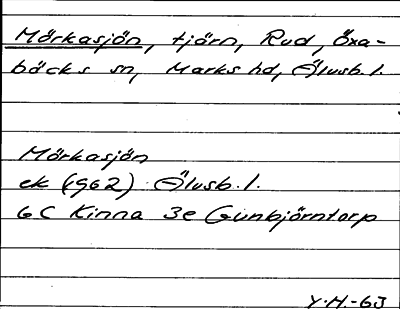 Mörkasjön, tjärn, Rud, Öxa-
bäcks sn, Marks hd, Älvsb. l.
Mörkasjön
ek (1962) Älvsb. l.
6C Kinna 3e Gunbjörntorp
Y.H.-63